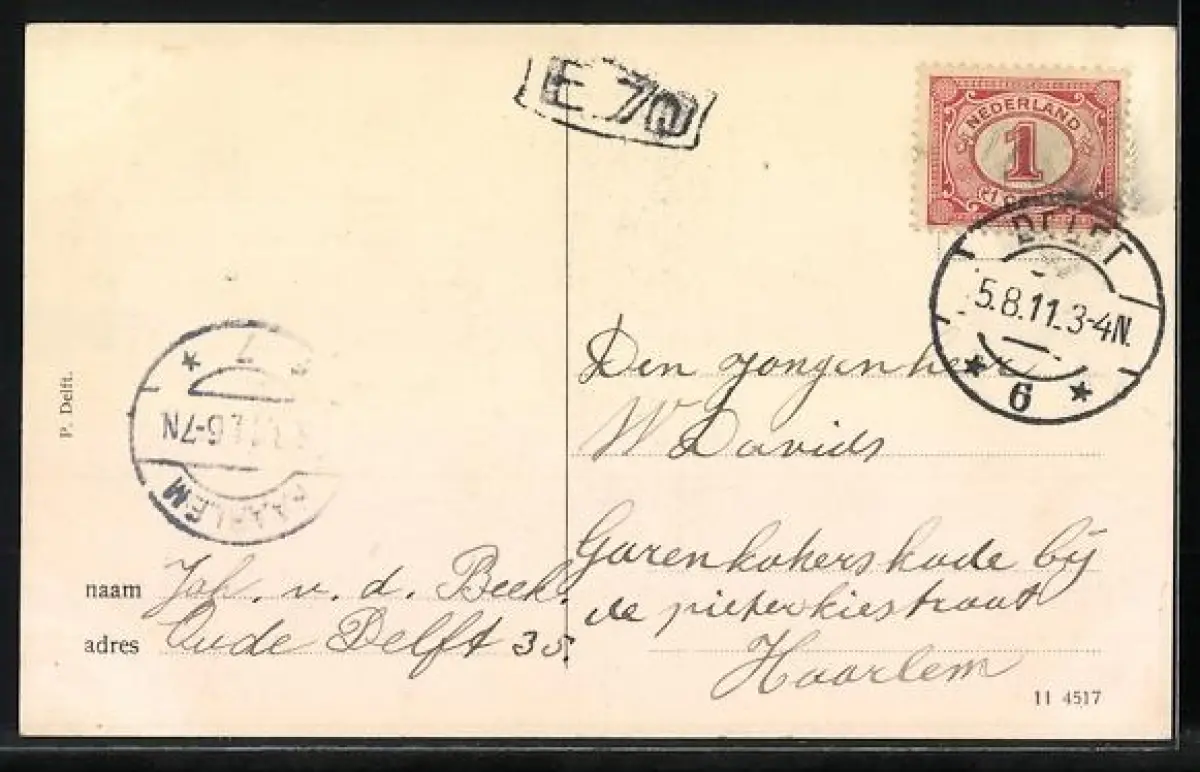 E 70
NEDERLAND
1
DELFT
5.8.11.3-4N.
6
Den jongenheer
W Davids
Garenkokerskade bij
de pieterkiestraat
Haarlem
11 4517
P. Delft.
7
6-7N
HAARLEM
naam Joh. v. d. Beek.
adres Oude Delft 35.